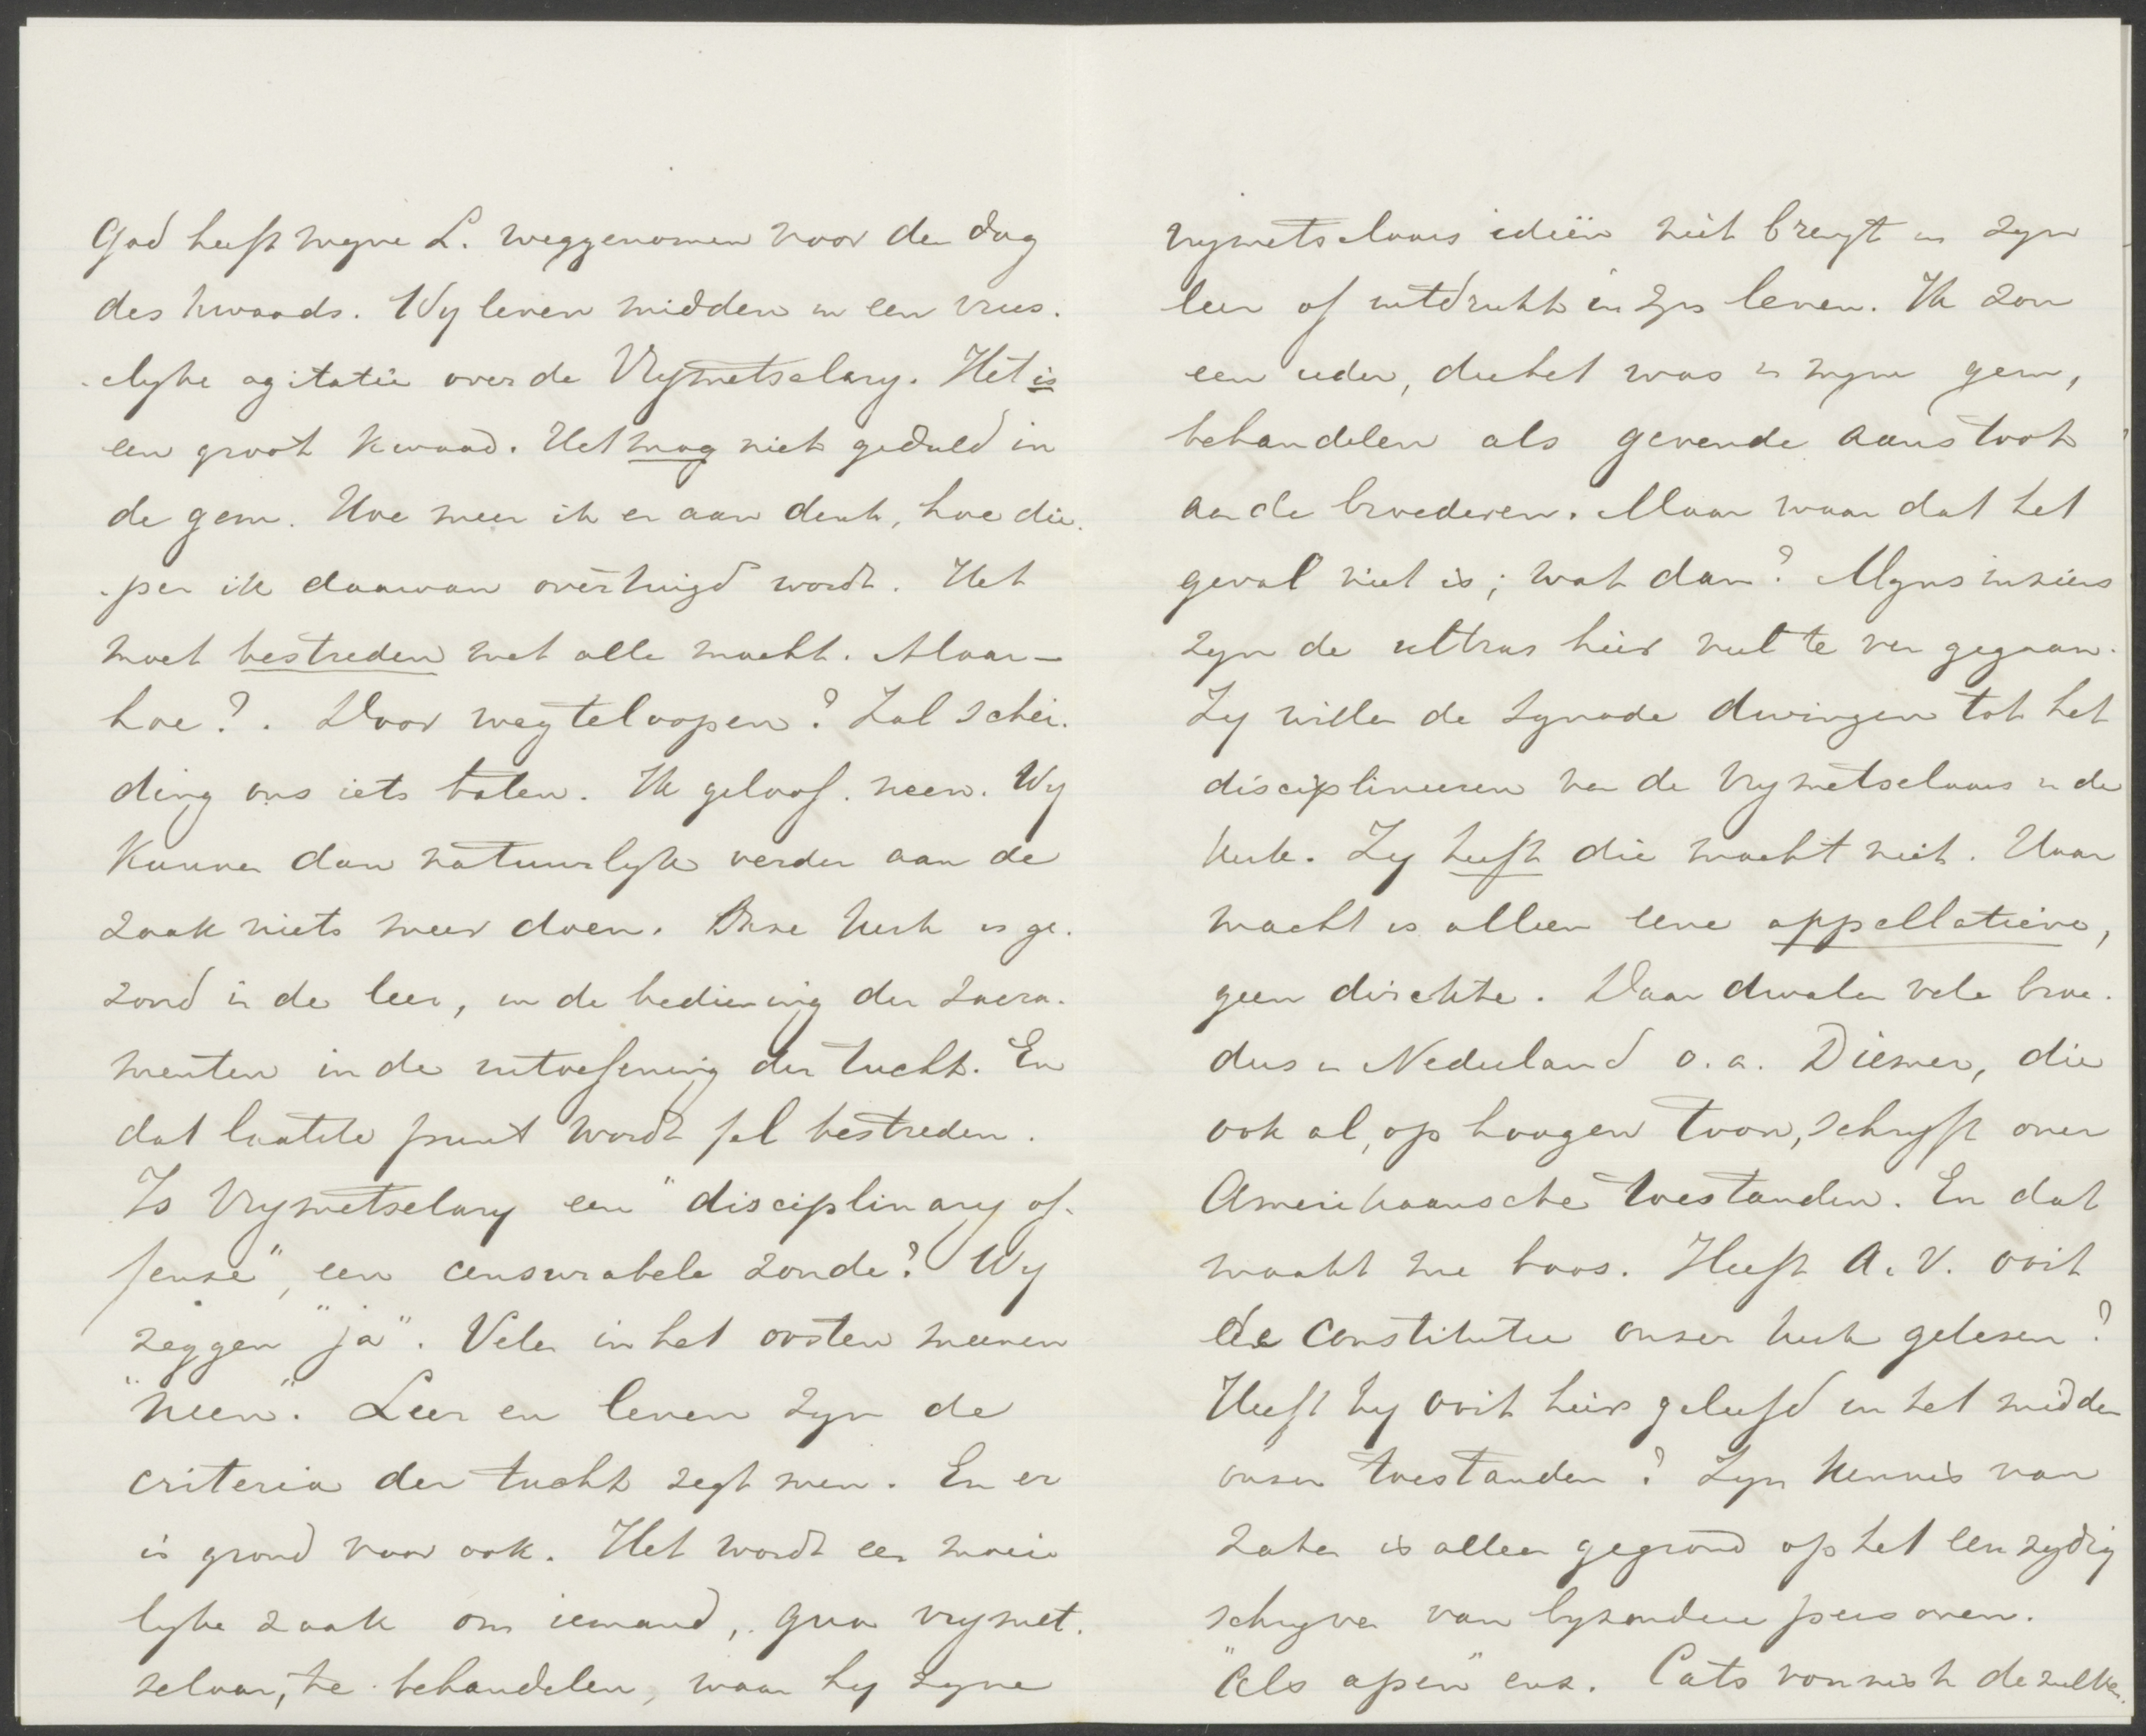 God heeft myne L. weggenomen voor den dag
des kwaads. Wy leven midden in een vrees-
-elyke agitatie over de Vrymetselary. Het is
een groot kwaad. Het mag niet geduld in
de gem. Hoe meer ik er aan denk, hoe die-
-per ik daarvan overtuigd wordt. Het
moet bestreden met alle macht. Maar -
hoe?. Door weg te loopen? Zal schei-
ding ons iets baten. Ik geloof neen. Wy
kunnen dan natuurlyk verder aan de
zaak niets meer doen. Onze kerk is ge-
zond in de leer, in de bediening der sacra-
menten in de uitoefening der tucht. En
dat laatste punt wordt fel bestreden.
Is Vrymetselary een "disciplinary of-
fense", een censurabele zonde? Wy
zeggen "ja". Velen in het oosten meenen
"neen". Leer en leven zyn de
criteria der tucht zegt men. En er
is grond voor ook. Het wordt een moeie
lyke zaak om iemand, qua vrymet-
selaar, te behandelen, waar hy zyne
vrymetselaars ideiën niet brengt in zyn
leer of uitdrukt in zyn leven. Ik zou
een ieder, die het was in myne gem,
behandelen als gevende aanstoot
aan de broederen. Maar waar dat het
geval niet is; wat dan? Myns inziens
zyn de ultras hier veel te ver gegaan.
Zy willen de Synode dwingen tot het
disciplineeren van de Vrymetselaars in de
kerk. Zy heeft die macht niet. Haar
macht is alleen eene appellatieve,
geen direkte. Daar dwalen vele broe-
ders in Nederland o. a. Diemer, die
ook al, op hoogen toon, schryft over
Amerikaansche toestanden. En dat
maakt me boos. Heeft A. V. ooit
de constitutie onzer kerk gelezen?
Heeft hy ooit hier geleefd in het midden
onzer toestanden? Zyn kennis van
zaken is alleen gegrond op het eenzydig
schryven van byzondere personen.
"Als apen" enz. Cats vonnist de zulken.